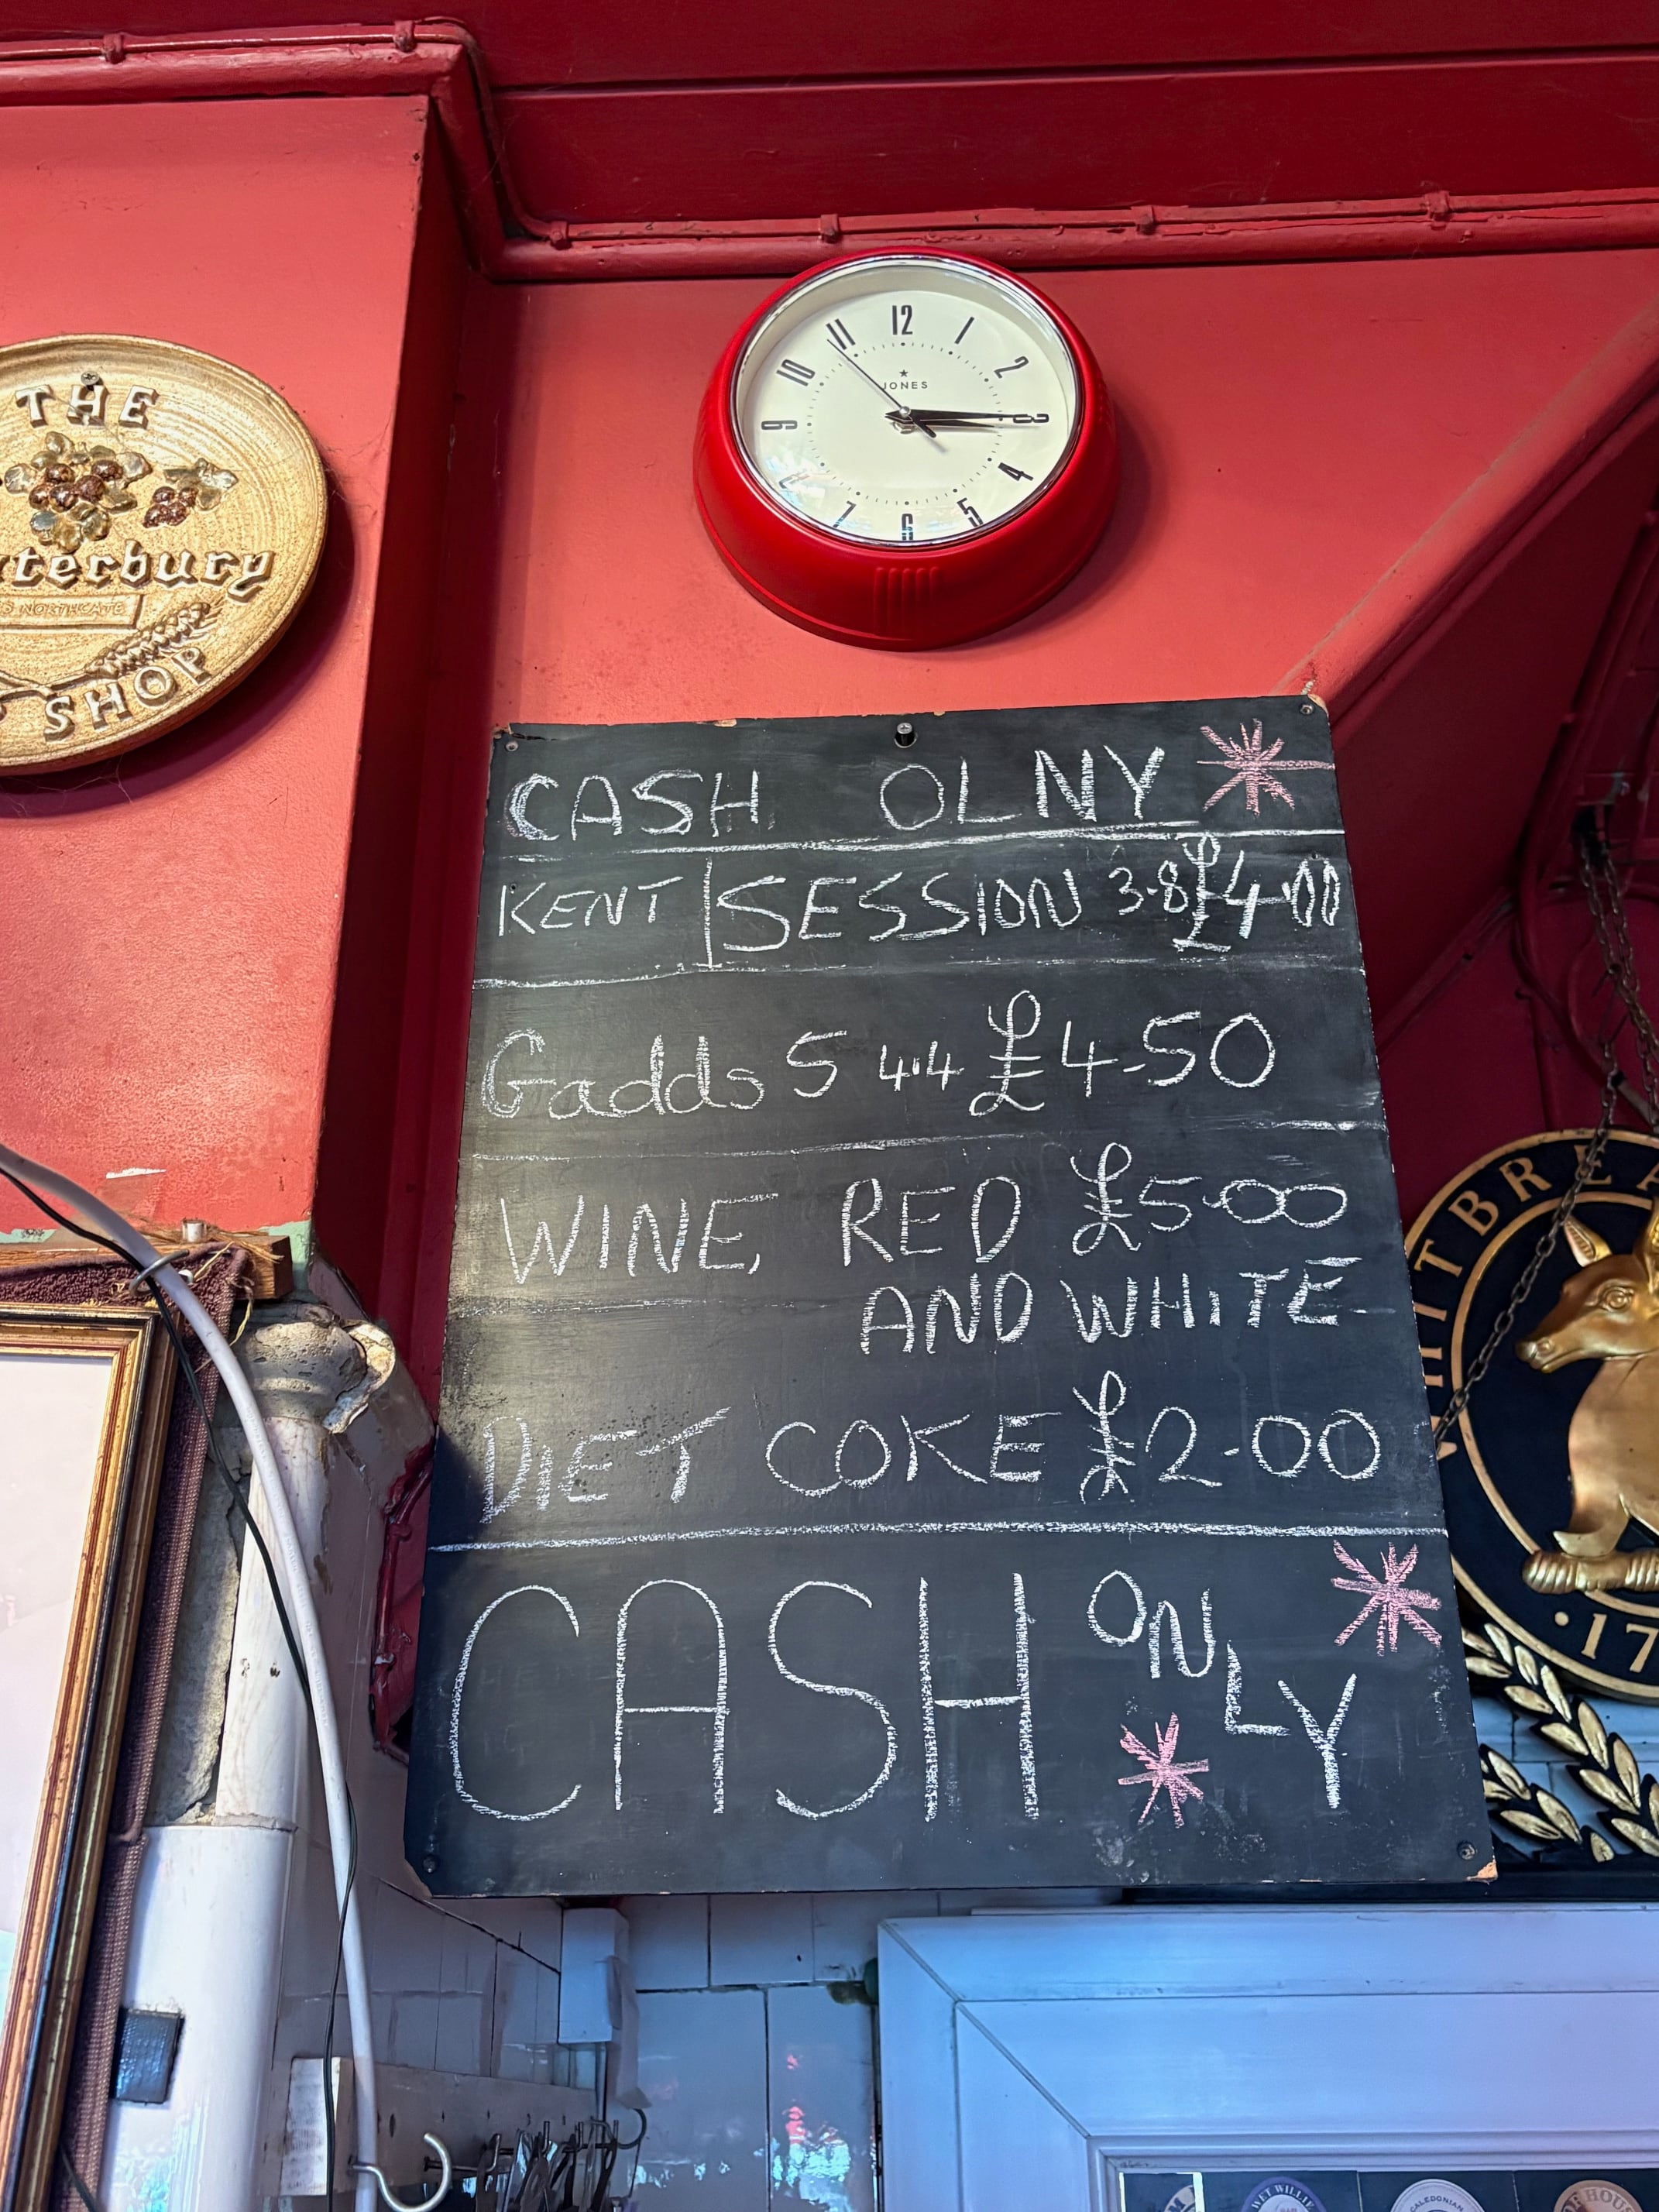 THE
terbury
NORTHGATE
SHOP
12
1
2
3
4
5
6
7
8
9
10
11
JONES
CASH OLNY
KENT SESSION 3.8 £4.00
Gadds 5 4.4 £4-50
WINE, RED £5.00
AND WHITE
DIET COKE £2.00
CASH ONLY
WHITBREA
·17
WET WILLIE
CALEDONIAN
HOUS